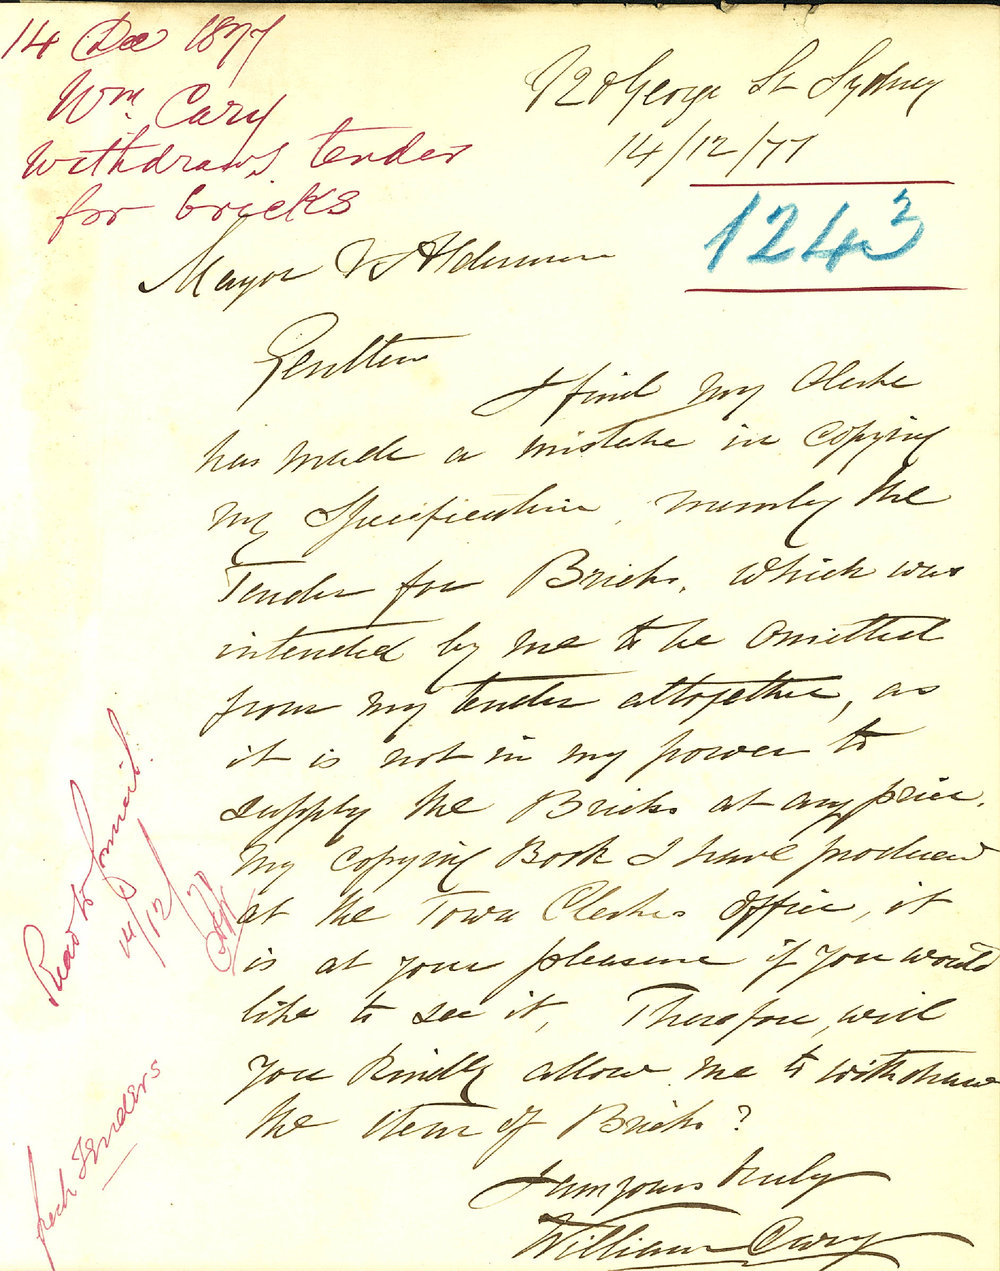 14 Dec 1877
Wm. Cary
withdraws tender
for bricks
720 George St Sydney
14/12/77
1243
Mayor & Aldermen
Gentlmen
I find my Clerke
has made a mistake in Copying
my Specification, namely the
Tender for Bricks, which was
intended by me to be Omitted
from my tender altogether, as
it is not in my power to
supply the Bricks at any price.
My Copying Book I have produced
at the Town Clerks Office, it
is at your pleasure if you would
like to see it, Therefore, will
you Kindly allow me to withdraw
the item of Bricks?
I am yours truly
William Cary
Read to Council.
14/12/77
fresh Tenders